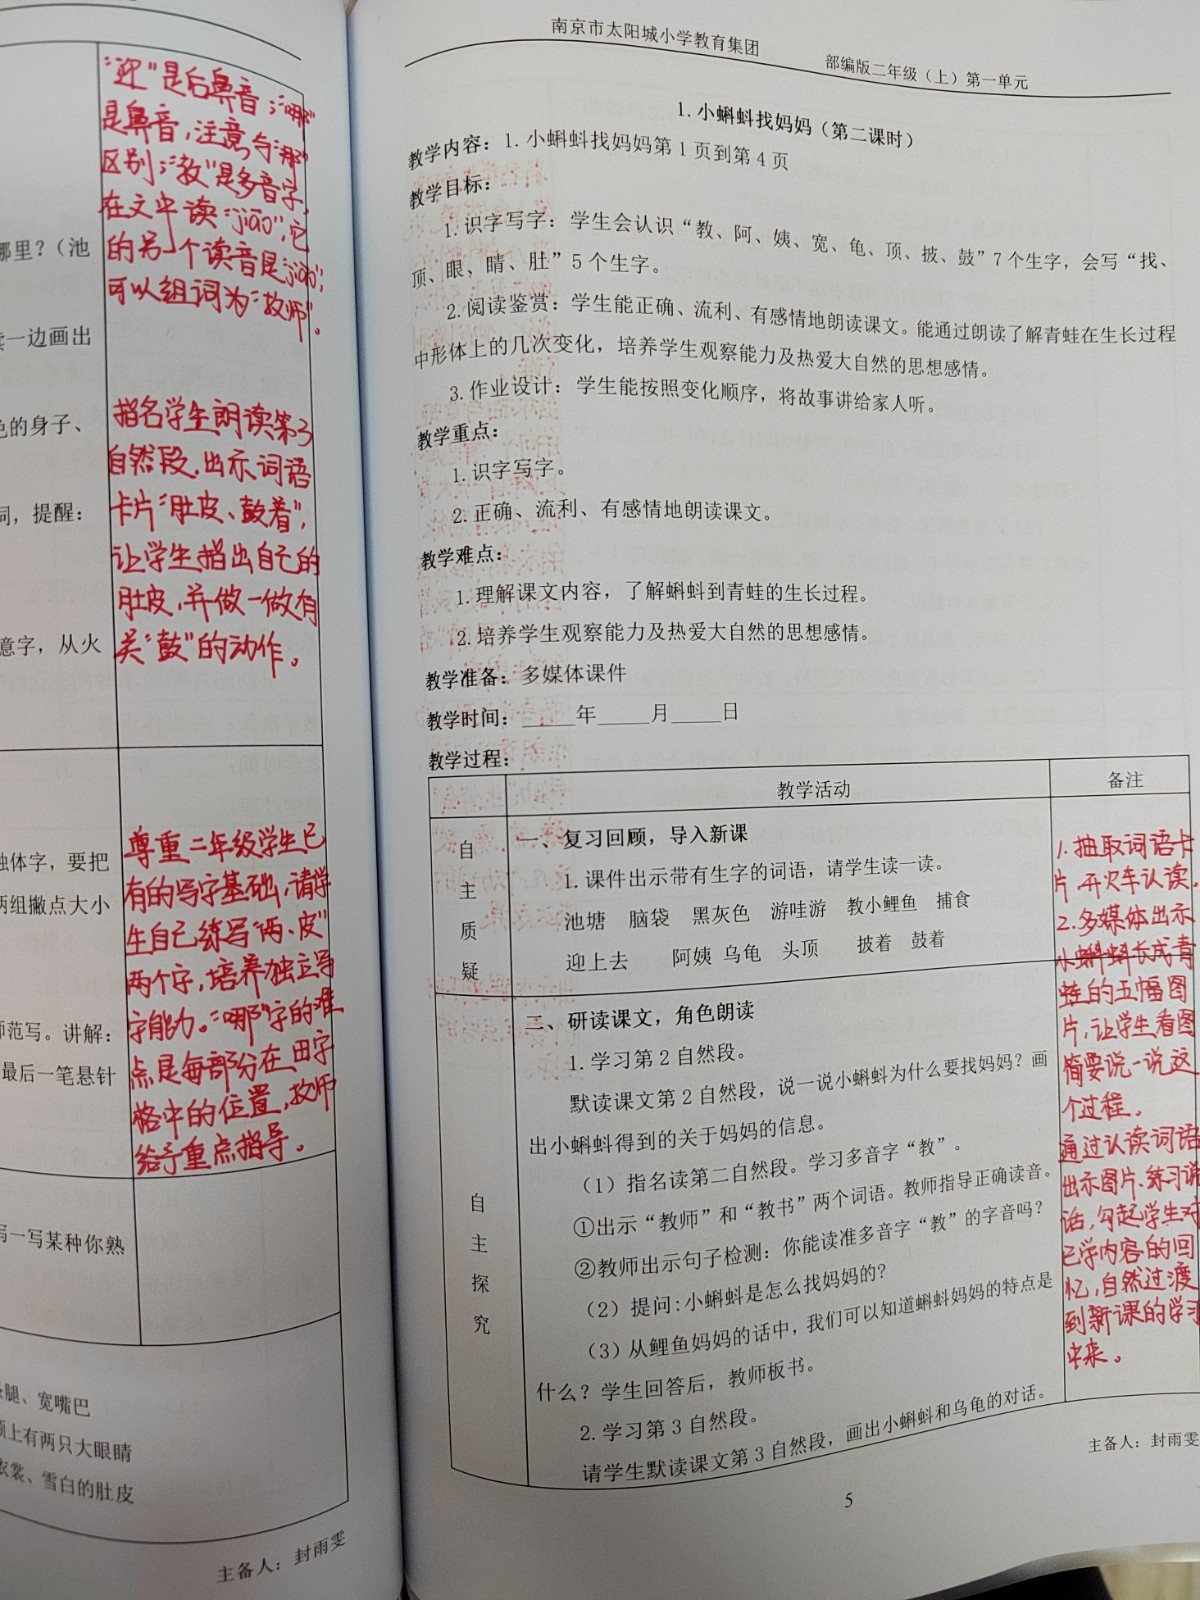 "迎"是后鼻音;"哪"
是鼻音,注意与"那"
区别;"教"是多音字,
在文中读"jiāo",它
的另一个读音是"jiào",
可以组词为"教师"。
哪里?(池
读一边画出
指名学生朗读第3
自然段,出示词语
卡片"肚皮、鼓着",
让学生指出自己的
肚皮,并做一做有
关"鼓"的动作。
色的身子、
词,提醒:
意字,从火
尊重二年级学生已
有的写字基础,请学
生自己练写"两、皮"
两个字,培养独立写
字能力。"哪"字的难
点是每部分在田字
格中的位置,教师
给予重点指导。
独体字,要把
两组撇点大小
师范写。讲解:
最后一笔悬针
写一写某种你熟
腿、宽嘴巴
顶上有两只大眼睛
衣裳、雪白的肚皮
主备人:封雨雯
南京市太阳城小学教育集团
部编版二年级(上)第一单元
1.小蝌蚪找妈妈(第二课时)
教学内容:1.小蝌蚪找妈妈第1页到第4页
教学目标:
1.识字写字:学生会认识“教、阿、姨、宽、龟、顶、披、鼓”7个生字,会写“找、
顶、眼、睛、肚”5个生字。
2.阅读鉴赏:学生能正确、流利、有感情地朗读课文。能通过朗读了解青蛙在生长过程
中形体上的几次变化,培养学生观察能力及热爱大自然的思想感情。
3.作业设计:学生能按照变化顺序,将故事讲给家人听。
教学重点:
1.识字写字。
2.正确、流利、有感情地朗读课文。
教学难点:
1.理解课文内容,了解蝌蚪到青蛙的生长过程。
2.培养学生观察能力及热爱大自然的思想感情。
教学准备:多媒体课件
教学时间:_____年_____月_____日
教学过程:
教学活动
备注
自主质疑
一、复习回顾,导入新课
1.课件出示带有生字的词语,请学生读一读。
池塘 脑袋 黑灰色 游哇游 教小鲤鱼 捕食
迎上去 阿姨 乌龟 头顶 披着 鼓着
自主探究
二、研读课文,角色朗读
1.学习第2自然段。
默读课文第2自然段,说一说小蝌蚪为什么要找妈妈?画
出小蝌蚪得到的关于妈妈的信息。
(1)指名读第二自然段。学习多音字“教”。
①出示“教师”和“教书”两个词语。教师指导正确读音。
②教师出示句子检测:你能读准多音字“教”的字音吗?
(2)提问:小蝌蚪是怎么找妈妈的?
(3)从鲤鱼妈妈的话中,我们可以知道蝌蚪妈妈的特点是
什么?学生回答后,教师板书。
2.学习第3自然段。
请学生默读课文第3自然段,画出小蝌蚪和乌龟的对话。
1.抽取词语卡
片,开火车认读。
2.多媒体出示
小蝌蚪长成青
蛙的五幅图
片,让学生看图
简要说一说这
个过程。
通过认读词语
出示图片、练习说
话,勾起学生对
已学内容的回
忆,自然过渡
到新课的学习
中来。
主备人:封雨雯
5